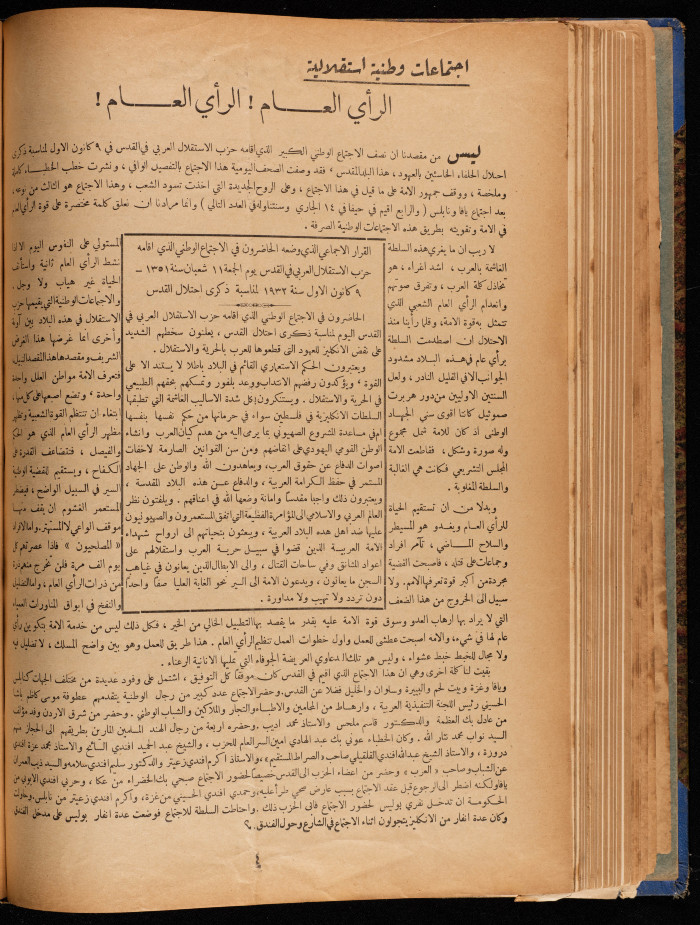 اجتماعات وطنية استقلالية
الرأي العـــام ! الرأي العـــام !
ليس من مقصدنا ان نصف الاجتماع الوطني الكبير الذي اقامه حزب الاستقلال العربي في القدس في ٩ كانون الاول لمناسبة ذكرى
احتلال الحلفاء الحانثين بالعهود، هذا البلد المقدس ، فقد وصفت الصحف اليومية هذا الاجتماع بالتفصيل الوافي ، ونشرت خطب الخطباء كاملة
وملخصة ، ووقف جمهور الامة على ما قيل في هذا الاجتماع ، وعلى الروح الجديدة التي اخذت تسود الشعب ، وهذا الاجتماع هو الثالث من نوعه ،
بعد اجتماع يافا ونابلس ( والرابع اقيم في حيفا في ١٤ الجاري وسنتناوله في العدد التالي ) وانما مرادنا ان نعلق كلمة مختصرة على قوة الرأي العام
في الامة وتقويته بطريق هذه الاجتماعات الوطنية الصرفة .
لا ريب ان ما يغري هذه السلطة
الغاشمة بالعرب ، اشد اغراء ، هو
تخاذل كلمة العرب ، وتفرق صوتهم
وانعدام الرأي العام الشعبي الذي
تتمثل به قوة الامة، وقلما رأينا منذ
الاحتلال ان اصطدمت السلطة
برأي عام في هذه البلاد مشدود
الجوانب الا في القليل النادر ، ولعل
السنتين الاوليين من دور هربرت
صموئيل كانتا اقوى سني الجهاد
الوطني اذ كان للامة شمل مجموع
وله صورة وشكل ، فقاطعت الامة
المجلس التشريعي فكانت هي الغالبة
والسلطة المغلوبة .
وبدلا من ان تستقيم الحياة
للرأي العام ويغدو هو المسيطر
والسلاح الماضي ، تآمر افراد
وجماعات على قتله ، فاصبحت القضية
مجردة من اكبر قوة تعرفها الامم . ولا
سبيل الى الخروج من هذا الضعف
القرار الاجماعي الذي وضعه الحاضرون في الاجتماع الوطني الذي اقامه
حزب الاستقلال العربي في القدس يوم الجمعة ١١ شعبان سنة ١٣٥١ —
٩ كانون الاول سنة ١٩٣٢ لمناسبة ذكرى احتلال القدس
الحاضرون في الاجتماع الوطني الذي اقامه حزب الاستقلال العربي في
القدس اليوم لمناسبة ذكرى احتلال القدس ، يعلنون سخطهم الشديد
على نقض الانكليز للعهود التي قطعوها للعرب بالحرية والاستقلال .
ويعتبرون الحكم الاستعماري القائم في البلاد باطلا لا يستند الا على
القوة ، ويؤكدون رفضهم الانتداب ووعد بلفور وتمسكهم بحقهم الطبيعي
في الحرية والاستقلال . ويستنكرون بكل شدة الاساليب الغاشمة التي تطبقها
السلطات الانكليزية في فلسطين سواء في حرمانها من حكم نفسها بنفسها
ام في مساعدة للمشروع الصهيوني بما يرمى اليه من هدم كيان العرب وانشاء
الوطن القومي اليهودي على انقاضهم ومن سن القوانين الصارمة لاخفات
اصوات الدفاع عن حقوق العرب، ويعاهدون الله والوطن على الجهاد
المستمر في حفظ الكرامة العربية ، والدفاع عن هذه البلاد المقدسة ،
ويعتبرون ذلك واجبا مقدسا وامانة وضعها الله في اعناقهم . ويلفتون نظر
العالم العربي والاسلامي الى المؤامرة الفظيعة التي اتفق المستعمرون والصهيونيون
عليها ضد اهل هذه البلاد العربية ، ويبعثون بتحياتهم الى ارواح شهداء
الامة العربية الذين قضوا في سبيل حرية العرب واستقلالهم على
اعواد المشانق وفي ساحات القتال ، والى الابطال الذين يعانون في غياهب
السجن ما يعانون ، ويدعون الامة الى السير نحو الغاية العليا صفا واحدا
دون تردد ولا تهيب ولا مداورة .
المستولي على النفوس اليوم الا اذا
نشط الرأي العام ثانية واستأنف
الحياة غير هياب ولا وجل .
والاجتماعات الوطنية التي يقيمها حزب
الاستقلال في هذه البلاد بين آونة
وأخرى انما غرضها هذا الغرض
الشريف ومقصدها هذا القصد النبيل
فتعرف الامة مواطن العلل واحدة
واحدة ، وتضع اصبعها على كل منها،
ابتغاء ان تنتظم القوة الشعبية وتظهر
مظهر الرأي العام الذي هو الحكم
والفيصل ، فتتضاعف القدرة على
الكفاح ، ويستقيم للقضية الوطنية
السير في السبيل الواضح ، فيضطر
المستعمر الغشوم ان يقف منها
موقف الواعي لا المستهتر. واما الافراد
« المصلحيون » فاذا عصرتهم كل
يوم الف مرة فلن تخرج منهم ذرة
من ذرات الرأي العام ، واما التضليل
والنفخ في ابواق المناورات العمياء
التي لا يراد بها ارهاب العدو وسوق قوة الامة عليه بقدر ما يقصد بها التطبيل الخالي من الخير ، فكل ذلك ليس من خدمة الامة بتكوين رأي
عام لها في شيء، والامة اصبحت عطشى للعمل واول خطوات العمل تنظيم الرأي العام . هذا طريق للعمل وهو بين واضح المسلك ، لا تضليل فيه
ولا مجال للخبط خبط عشواء ، وليس هو تلك الدعاوى العريضة الجوفاء التي تمليها الانانية الرعناء .
بقيت لنا كلمة اخرى وهي ان هذا الاجتماع الذي اقيم في القدس كان موفقا كل التوفيق ، اشتمل على وفود عديدة من مختلف الجهات كنابلس
ويافا وغزة وبيت لحم والبيرة وسلوان والخليل فضلا عن القدس وحضر الاجتماع عدد كبير من رجال الوطنية يتقدمهم عطوفة موسى كاظم باشا
الحسيني رئيس اللجنة التنفيذية العربية ، وارهاط من المحامين والاطباء والتجار والملاكين والشباب الوطني . وحضر من شرق الاردن وفد مؤلف
من عادل بك العظمة والدكتور قاسم ملحس والاستاذ محمد اديب . وحضره اربعة من رجال الهند المسلمين المارين بطريقهم الى الحجاز منهم
السيد نواب محمد نثار الله . وكان الخطباء عوني بك عبد الهادي امين السر العام للحزب ، والشيخ عبد الحميد افندي السائح والاستاذ محمد عزة افندي
دروزة ، والاستاذ الشيخ عبد الله افندي القلقيلي صاحب «الصراط المستقيم» والاستاذ اكرم افندي زعيتر والدكتور سليم افندي سلامه والسيد ذيب العمران
عن الشباب وصاحب «العرب» وحضر من اعضاء الحزب الى القدس خصيصا لحضور الاجتماع صبحي بك الخضراء من عكا ، وحربي افندي الايوبي من
يافا ولكنه اضطر الى الرجوع قبل عقد الاجتماع بسبب عارض صحي طرأ عليه، وحمدي افندي الحسيني من غزة، واكرم افندي زعيتر من نابلس. وحاولت
الحكومة ان تدخل نفري بوليس لحضور الاجتماع فأبى الحزب ذلك . واحتاطت السلطة للاجتماع فوضعت عدة انفار بوليس على مدخل الفندق
وكان عدة انفار من الانكليز يتجولون اثناء الاجتماع في الشارع وحول الفندق .
٤